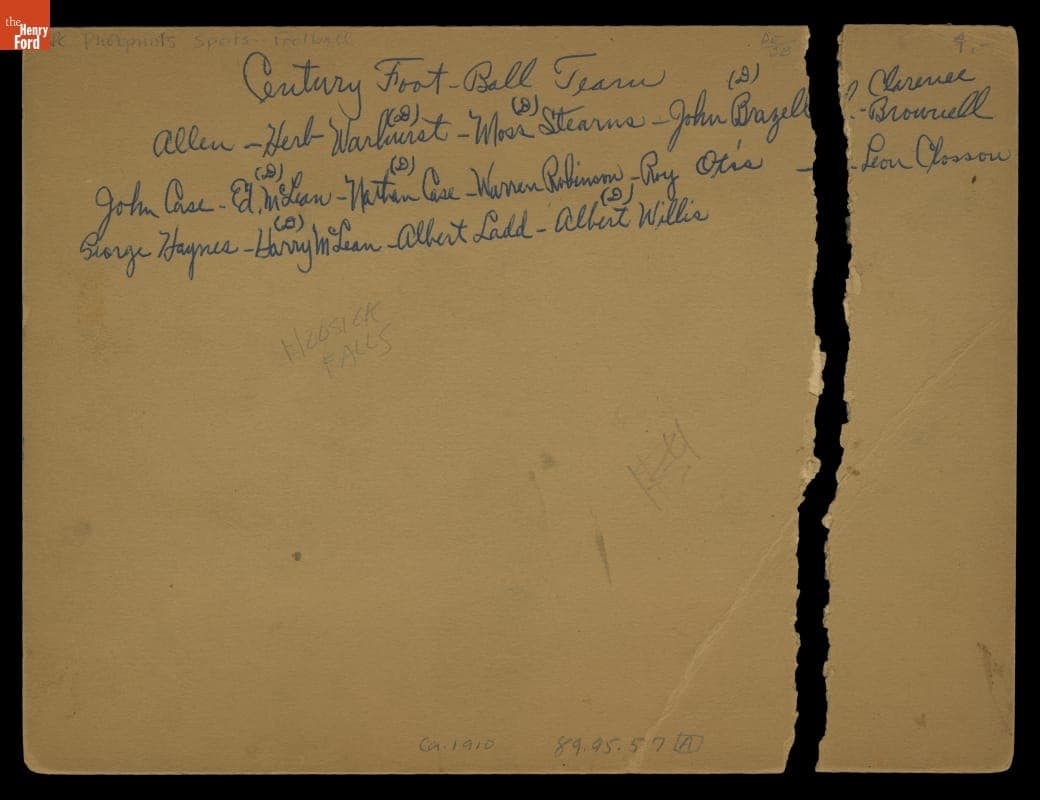 the
Henry
Ford
Photoprints Sports - Football
4.-
Century Foot-Ball Team
(D) (D) (D) Clarence
Allen - Herb Warhurst - Moss Stearns - John Brazell - Brownell
(D) (D)
John Case - Ed. McLean - Nathan Case - Warren Robinson - Roy Otis - - Leon Closson
(D) (D)
George Haynes - Harry McLean - Albert Ladd - Albert Willis
HOOSICK
FALLS
Ca. 1910 89.95.57 A